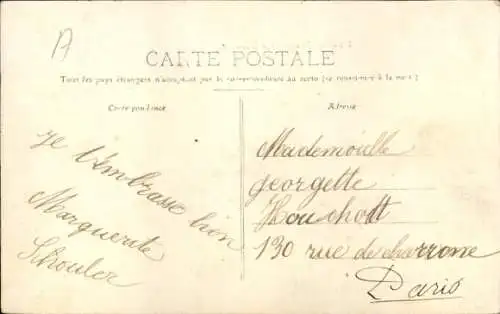 A
CARTE POSTALE
Tous les pays étrangers n'acceptent pas la correspondance au verso (se renseigner à la poste)
Correspondance
Adresse
Je t'embrasse bien
Marguerite
Schouler
Mademoiselle
georgette
Houchott
130 rue de charronne
Paris